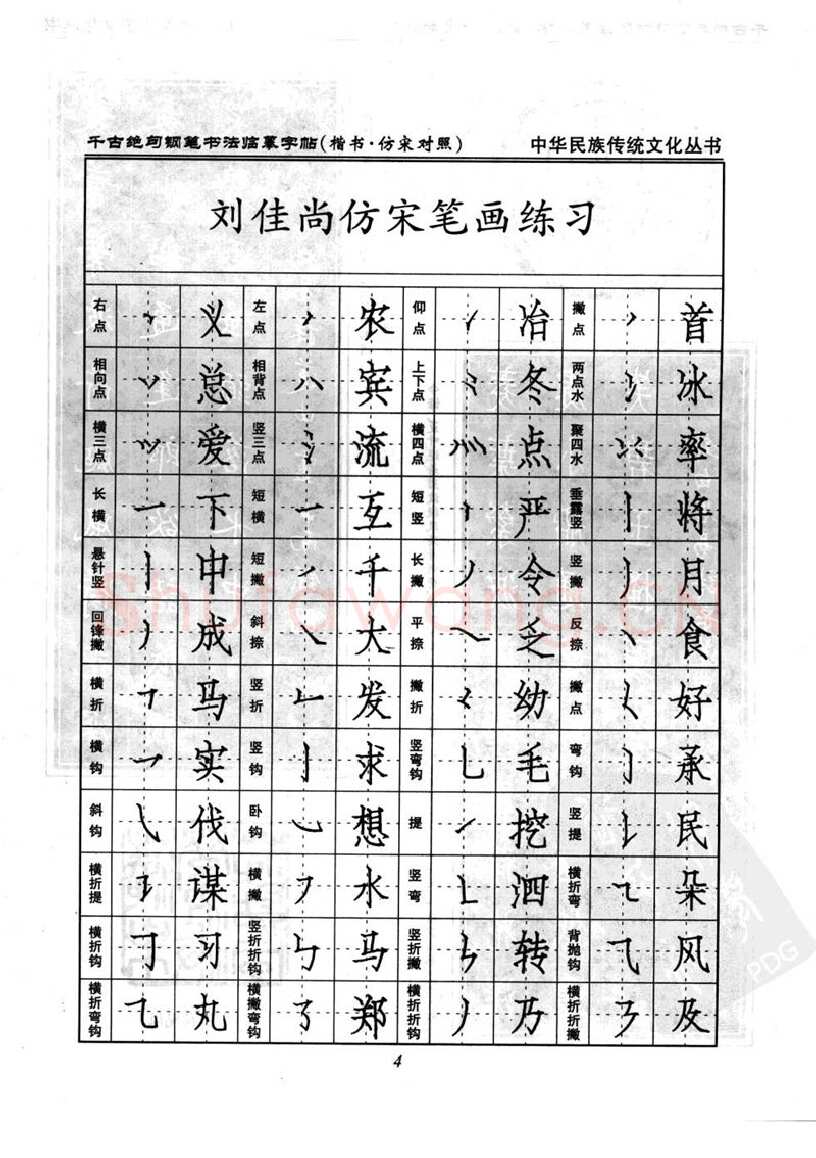 千古绝句钢笔书法临摹字帖(楷书·仿宋对照)
中华民族传统文化丛书
刘佳尚仿宋笔画练习
右点 丶 义 左点 丶 农 仰点 冶 撇点 首
相向点 总 相背点 宾 上下点 冬 两点水 冰
横三点 爱 竖三点 流 横四点 点 聚四水 率
长横 一 下 短横 一 互 短竖 严 垂露竖 丨 将
悬针竖 丨 申 短撇 丿 千 长撇 丿 令 竖撇 丿 月
回锋撇 丿 成 斜捺 ㇏ 大 平捺 ㇏ 乏 反捺 丶 食
横折 马 竖折 发 撇折 幼 撇点 好
横钩 实 竖钩 亅 求 竖弯钩 乚 毛 弯钩 承
斜钩 伐 卧钩 想 提 挖 竖提 民
横折提 谋 横撇 水 竖弯 泗 横折弯 朵
横折钩 习 竖折折钩 马 竖折撇 转 背抛钩 风
横折弯钩 丸 横撇弯钩 郑 横折折钩 丿 乃 横折折撇 及
4
Shufawang.CN
PDG